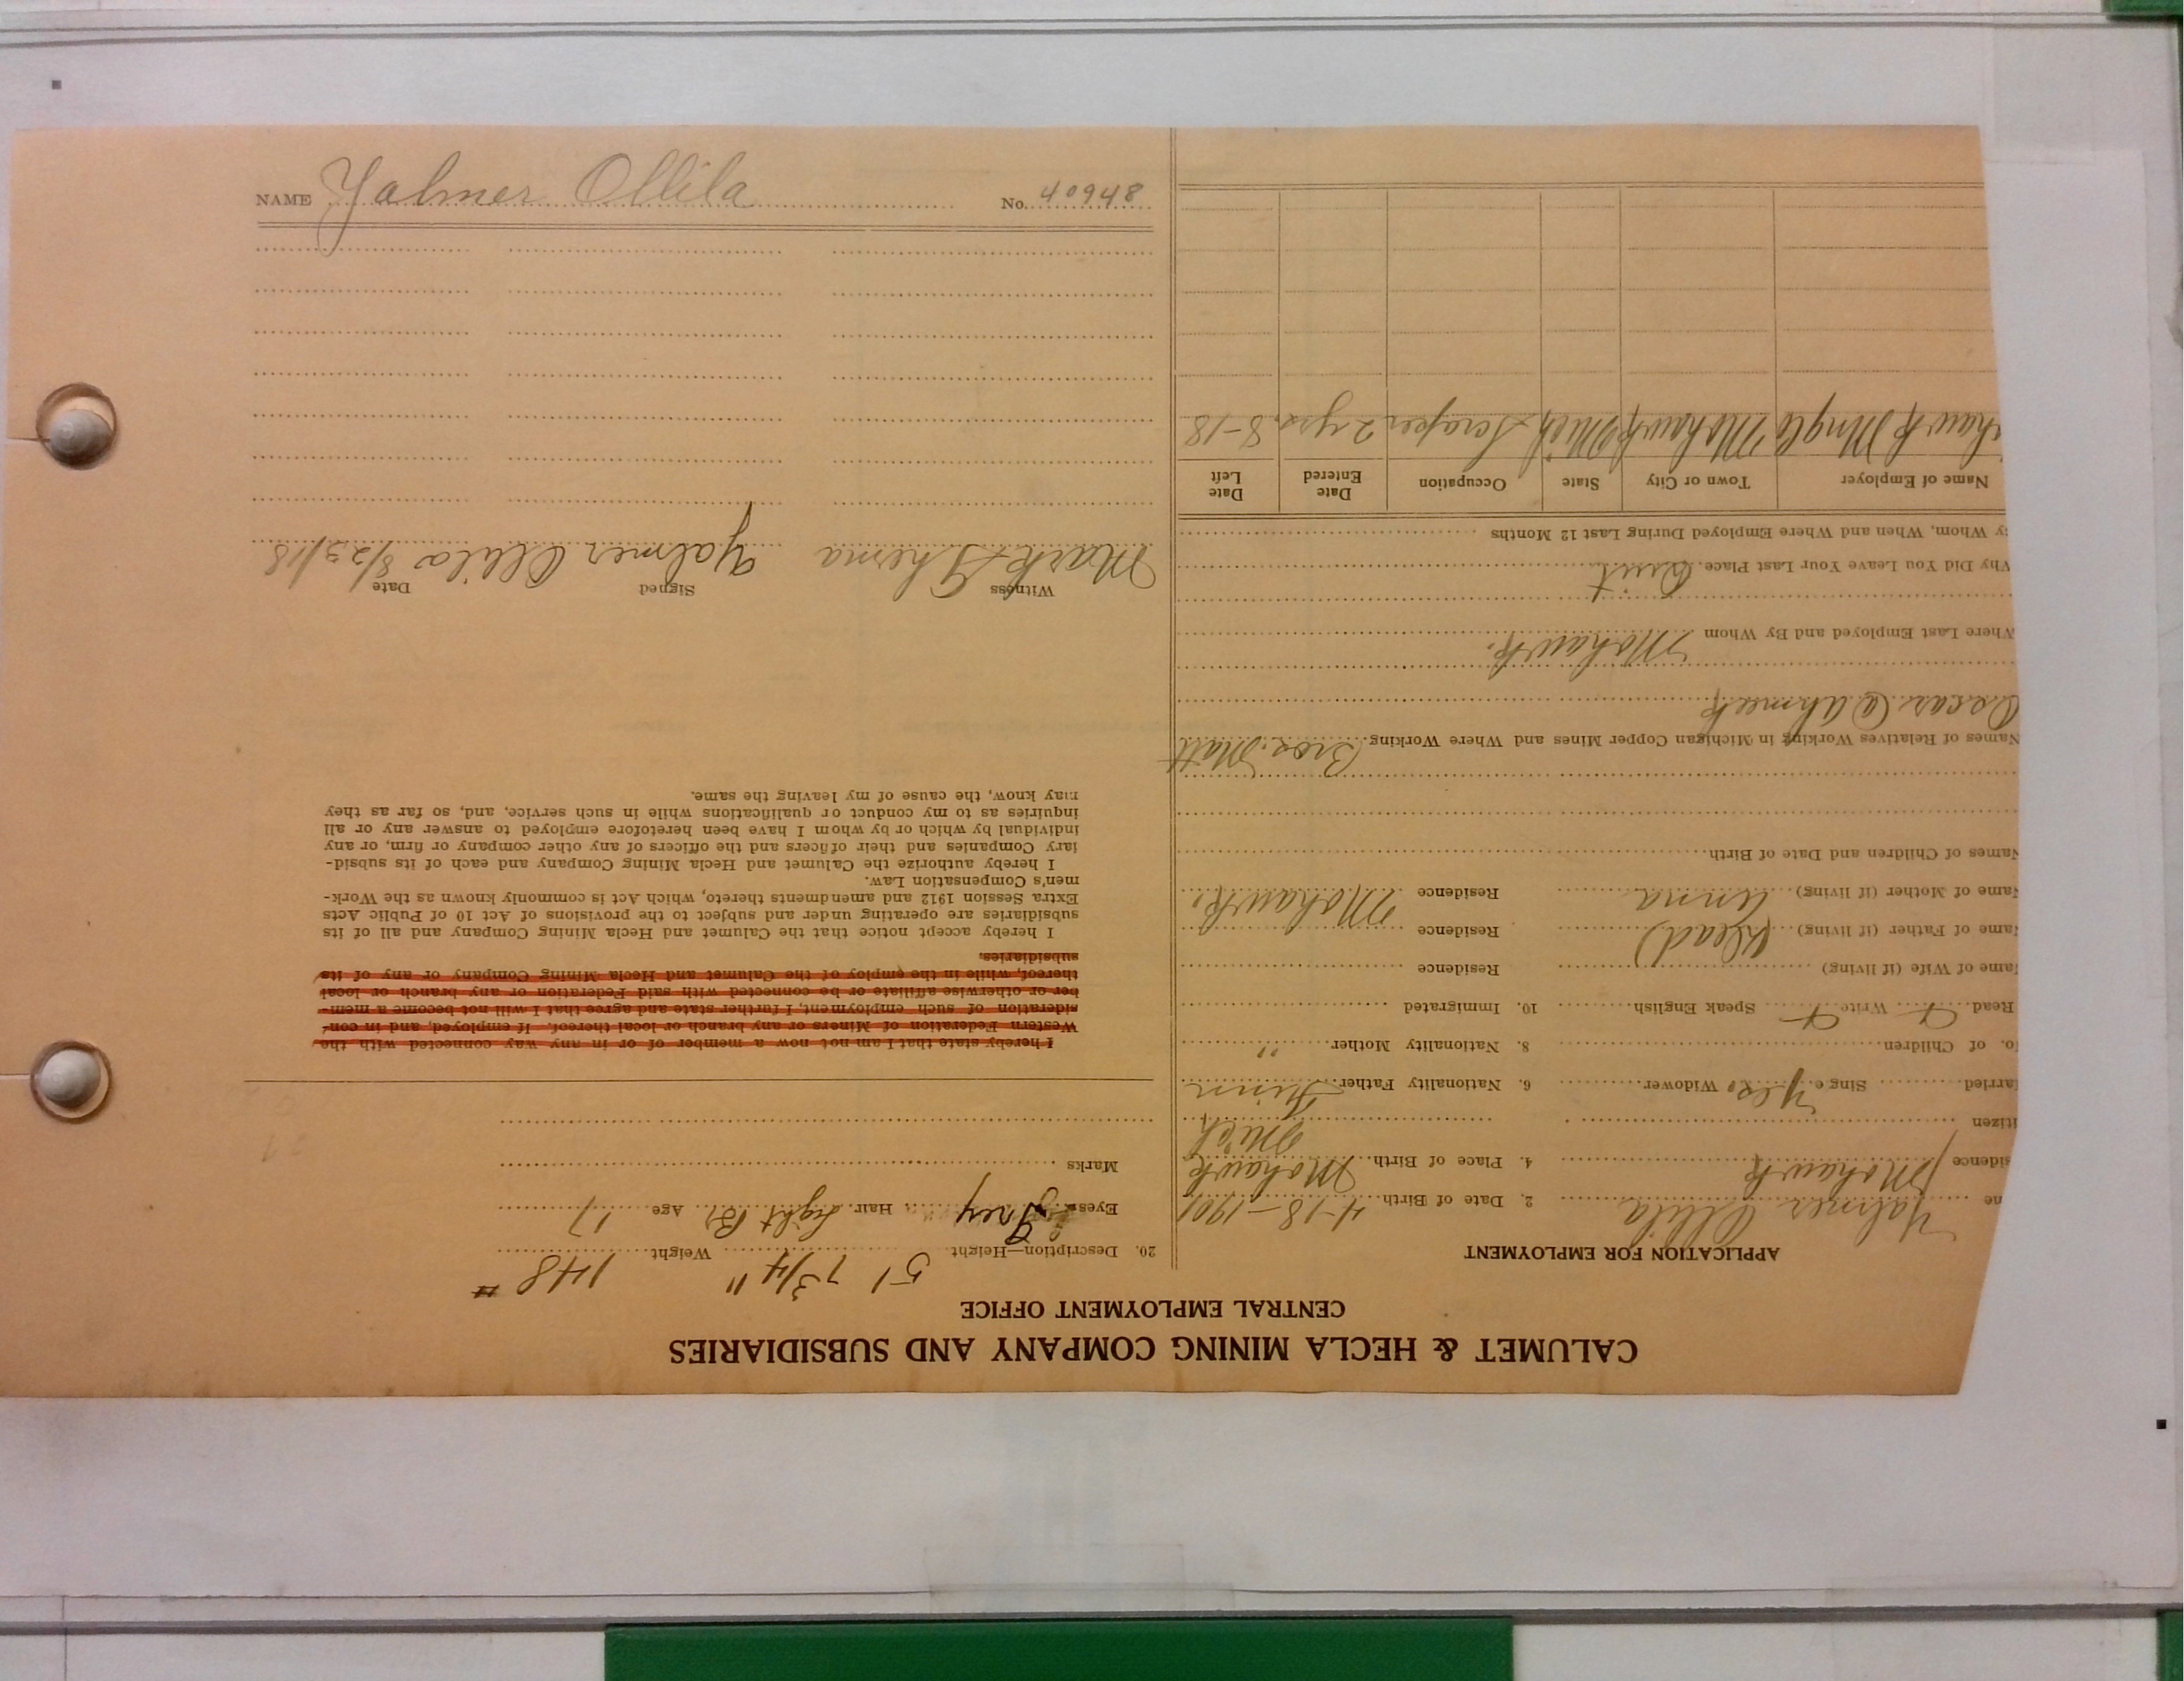 NAME Yalmer Ollila No. 40948
CALUMET & HECLA MINING COMPANY AND SUBSIDIARIES
CENTRAL EMPLOYMENT OFFICE
APPLICATION FOR EMPLOYMENT
me Yalmer Ollila 2. Date of Birth 4-18-1901
sidence Mohawk 4. Place of Birth Mohawk
Mich
itizen
arried Sing e yes. Widower 6. Nationality Father Finn
o. of Children 8. Nationality Mother "
Read Write Speak English 10. Immigrated
ame of Wife (if living) Residence
ame of Father (if living) (Dead) Residence
ame of Mother (if living) Anna Residence Mohawk.
Names of Children and Date of Birth
Names of Relatives Working in Michigan Copper Mines and Where Working Bros. Matt
Oscar @ Ahmeek
Where Last Employed and By Whom Mohawk.
Why Did You Leave Your Last Place. Quit
By Whom, When and Where Employed During Last 12 Months
Name of Employer Town or City State Occupation Date Entered Date Left
hawk Mng Co Mohawk Mich Scraper 2 yrs. 8-18
20. Description—Height 5' 7 3/4" Weight 148 #
Eyes Grey Hair Light Br. Age 17
Marks
I hereby state that I am not now a member of or in any way connected with the
Western Federation of Miners or any branch or local thereof. If employed, and in con-
sideration of such employment, I further state and agree that I will not become a mem-
ber or otherwise affiliate or be connected with said Federation or any branch or local
thereof, while in the employ of the Calumet and Hecla Mining Company or any of its
subsidiaries.
I hereby accept notice that the Calumet and Hecla Mining Company and all of its
subsidiaries are operating under and subject to the provisions of Act 10 of Public Acts
Extra Session 1912 and amendments thereto, which Act is commonly known as the Work-
men's Compensation Law.
I hereby authorize the Calumet and Hecla Mining Company and each of its subsid-
iary Companies and their officers and the officers of any other company or firm, or any
individual by which or by whom I have been heretofore employed to answer any or all
inquiries as to my conduct or qualifications while in such service, and, so far as they
may know, the cause of my leaving the same.
Witness Signed Date
Mark Yalmer Ollila 8/23/18